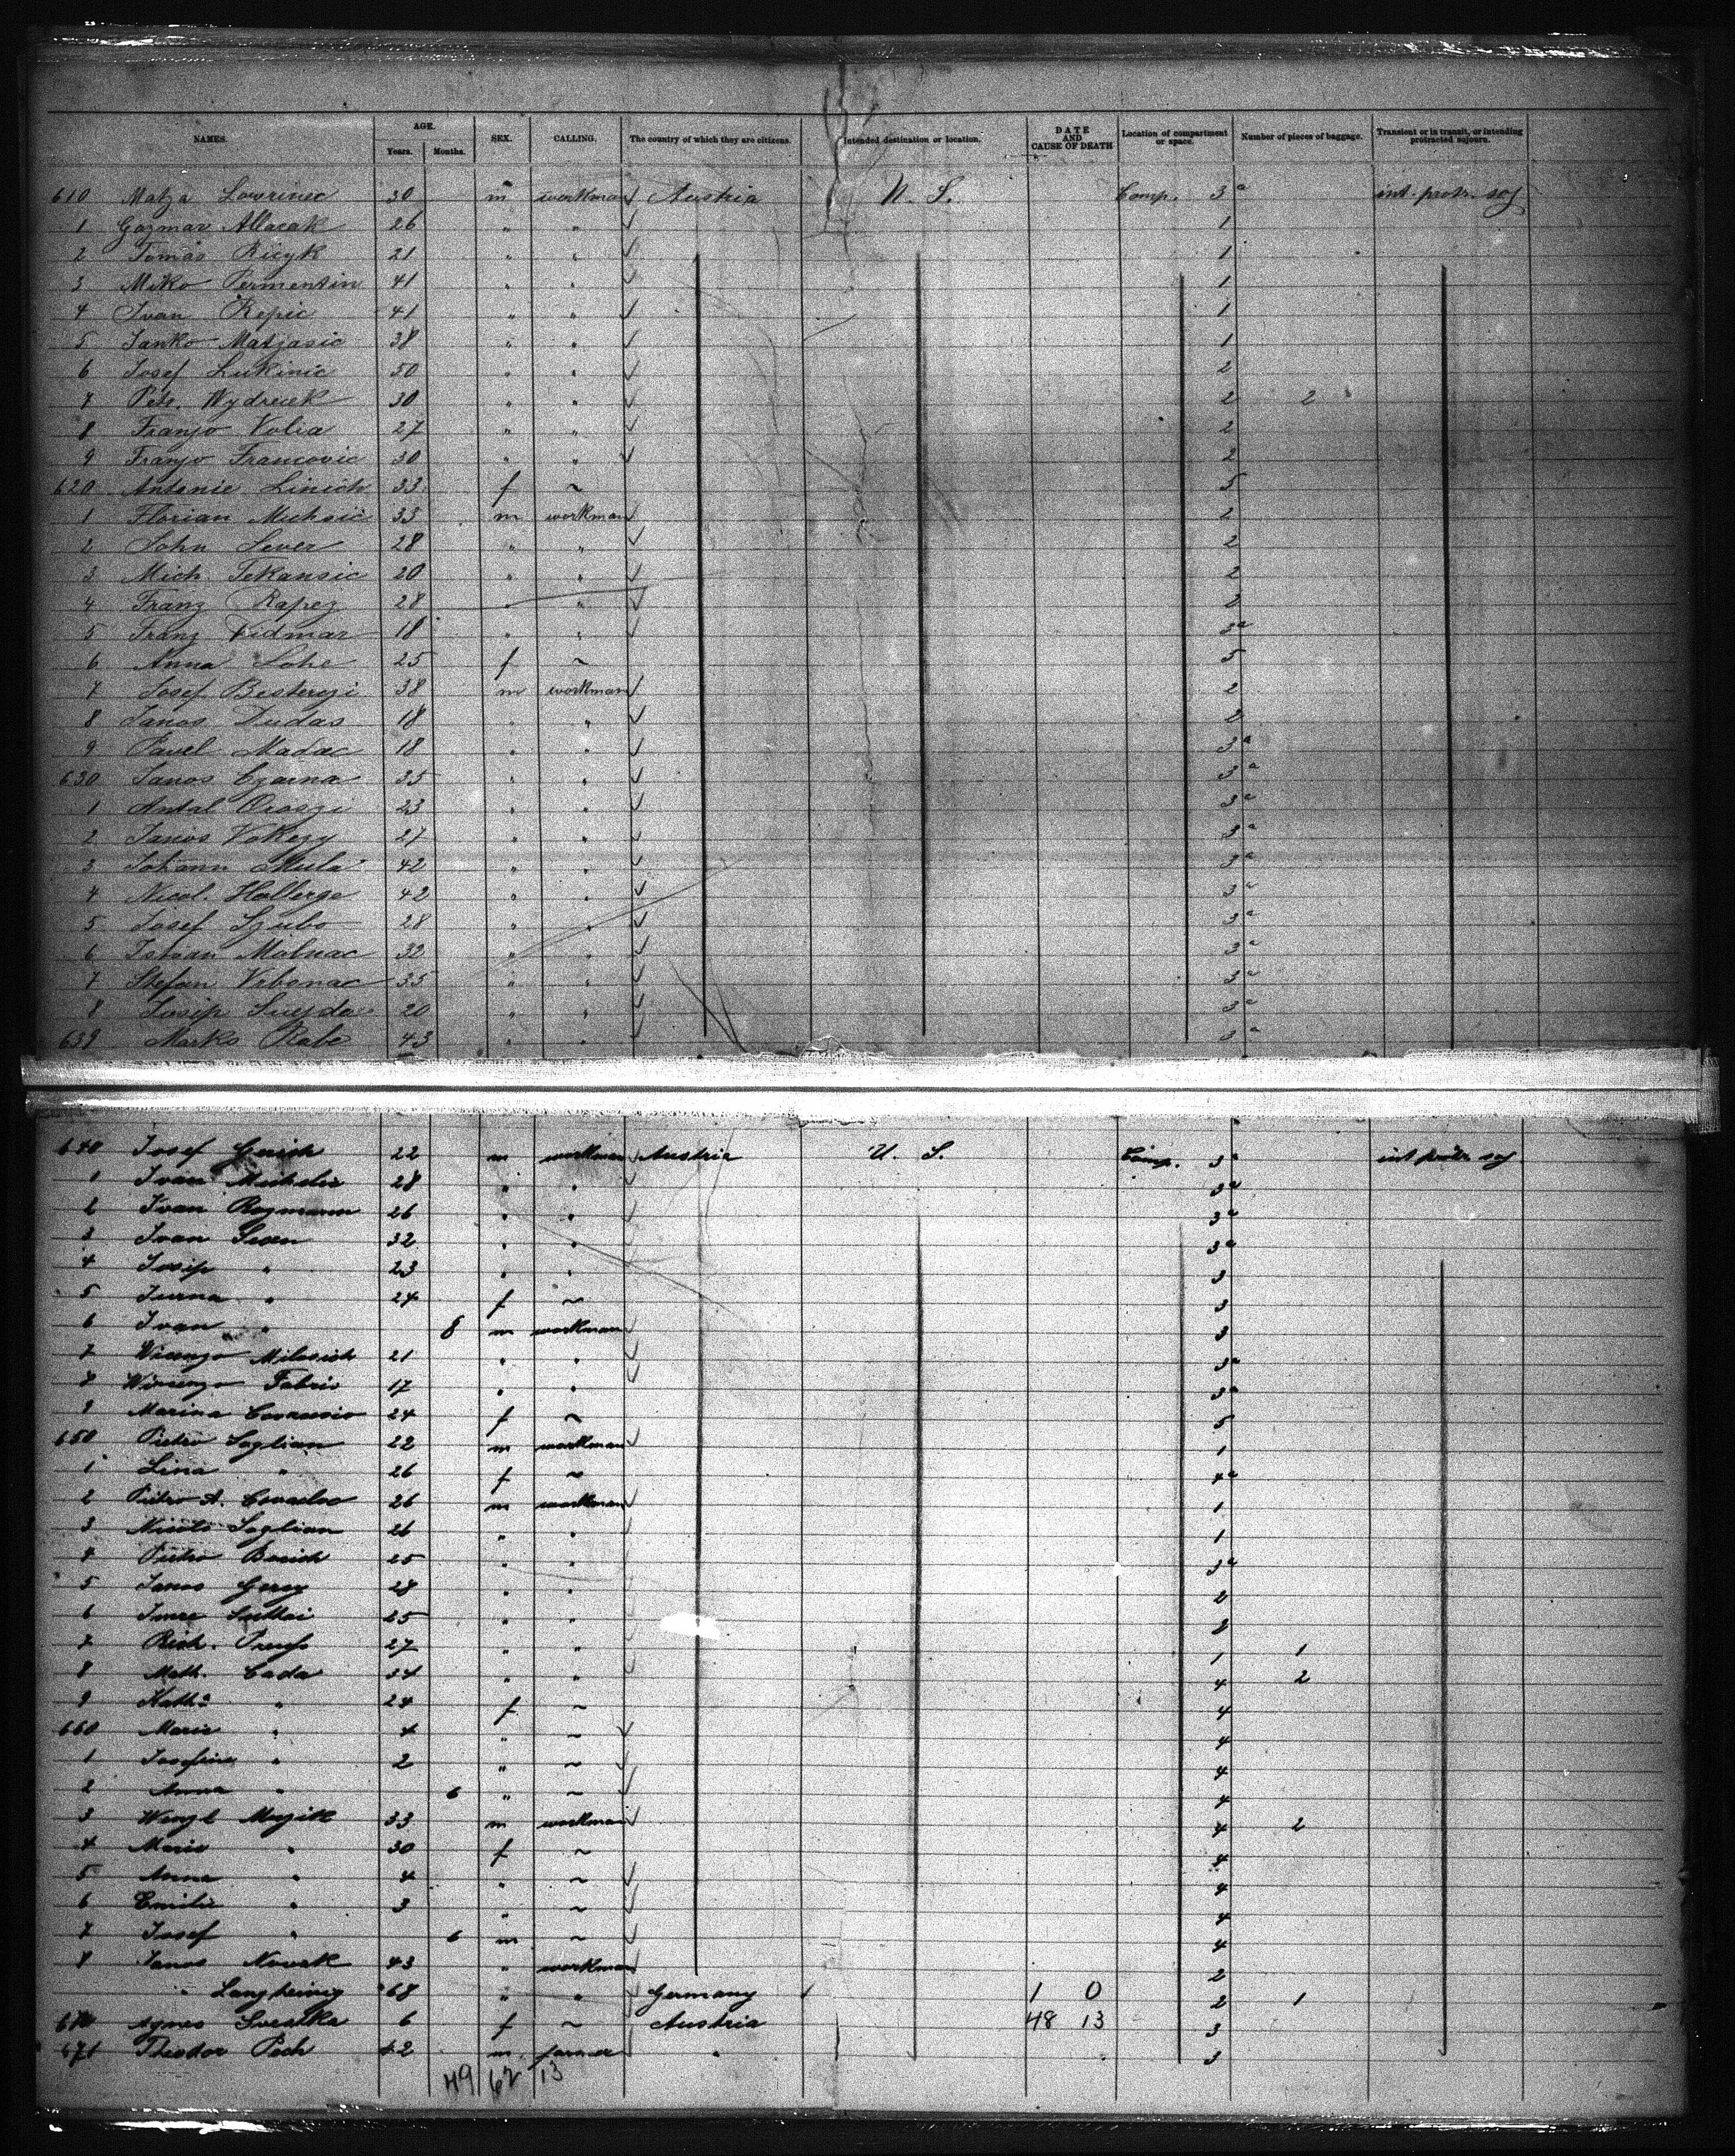 NAMES. AGE. SEX. CALLING. The country of which they are citizens. Intended destination or location. DATE AND CAUSE OF DEATH Location of compartment or space. Number of pieces of baggage. Transient or in transit, or intending protracted sojourn.
Years. Months.
610 Matza Lowrinec 30 m workman Austria U. S. Comp. 3a int. protr. soj
1 Gazmar 26 " " 1
2 Tomas 21 " " 1
3 Miko Permentin 41 " " 1
4 Ivan Repic 41 " " 1
5 Janko Matzasic 38 " " 1
6 Josef Lukinic 50 " " 2
7 Pets. Wydrecek 30 " " 2 2
8 Franjo Volia 27 " " 2
9 Franjo Francovic 30 " " 2
620 Antonie Linich 33 f ~ 5
1 Florian Muhsic 33 m workman 2
2 John Sever 28 " " 2
3 Mich. Tekansic 20 " " 2
4 Franz Rapez 28 " " 2
5 Franz Vidmar 18 " " 3a
6 Anna Lohe 25 f ~ 5
7 Josef 38 m workman 2
8 Janos Dudas 18 " " 2
9 Pavel Madac 18 " " 3a
630 Janos Czarna 35 " " 3a
1 Antal Oroszi 23 " " 3a
2 Janos Vokezy 27 " " 3a
3 Johann 42 " " 3a
4 Nicol. Hollerge 42 " " 3a
5 Josef Szubo 28 " " 3a
6 Istvan Molnac 32 " " 3a
7 Stefan Vrbonac 35 " " 3a
8 Josip 20 " " 3a
639 Marko Rabe 43 " " 3a
640 Josef 22 m workman Austria U. S. Comp. 3a int protr soj
1 Ivan Michelic 28 " " 3a
2 Ivan 26 " " 3a
3 Ivan 32 " " 3a
4 Josip " 23 " " 3
5 Jurna " 24 f ~ 3
6 Ivan " 8 m workman 3
7 Wicenzo Milosich 21 " " 3a
8 Wincenzo Fabris 17 " " 3a
9 Marina 24 f ~ 5
650 Pietro Soglian 22 m workman 1
1 Lina " 26 f ~ 4a
2 Pietro A. 26 m workman 1
3 Nicolo Soglian 26 " " 1
4 Pietro Busich 25 " " 3a
5 Janos Gerey 28 " " 2
6 Imre 25 " " 2
7 Rich. Preuss 27 " " 1 1
8 Math. Cada 34 " " 4 2
9 Kath. " 24 f ~ 4
660 Marie " 4 " ~ 4
1 Josefine " 2 " ~ 4
2 Anna " 6 " ~ 4
3 Wenzl Muzik 33 m workman 4 2
4 Marie " 30 f ~ 4
5 Anna " 4 " ~ 4
6 Emilie " 3 " ~ 4
7 Josef " 6 m ~ 4
8 Janos Novak 43 " workman 2
" Langheinrig 68 " " Germany 1 0 2 1
670 Agnes Svratka 6 f ~ Austria 48 13 3
671 Theodor Pech 42 m farmer " 3
49 62 13